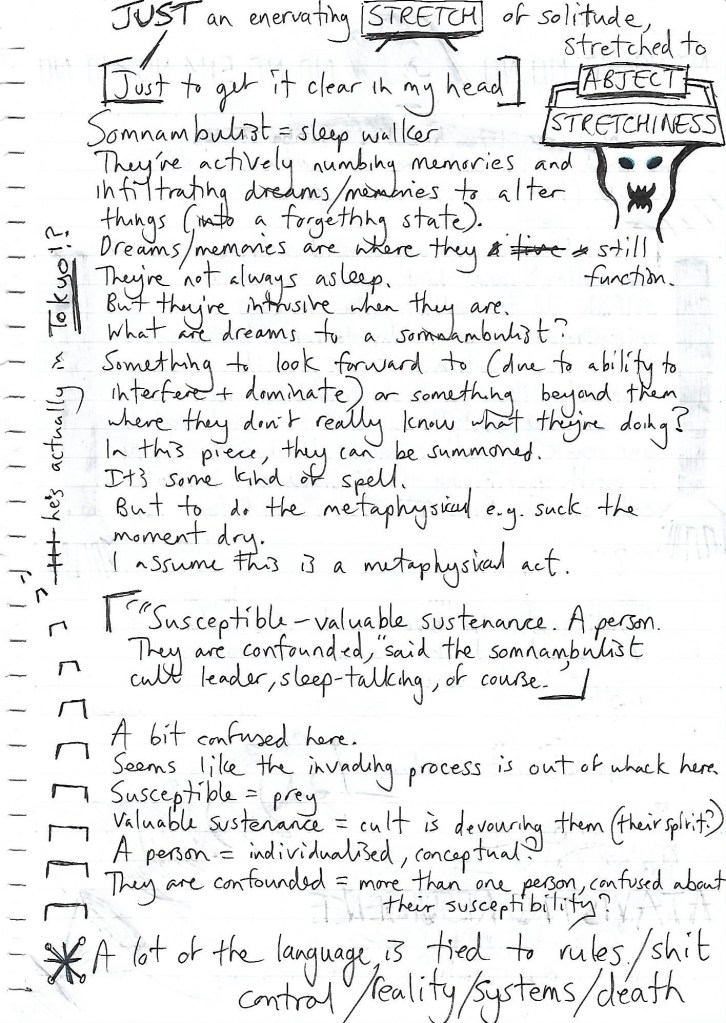 JUST an enervating STRETCH of solitude,
stretched to
ABJECT
STRETCHINESS
[Just to get it clear in my head]
Somnambulist = sleep walker
They're actively numbing memories and
infiltrating dreams/memories to alter
things (into a forgetting state).
Dreams/memories are where they live still
function.
They're not always asleep.
But they're intrusive when they are.
What are dreams to a somnambulist?
Something to look forward to (due to ability to
interfere + dominate) or something beyond them
where they don't really know what they're doing?
In this piece, they can be summoned.
It's some kind of spell.
But to do the metaphysical e.g. suck the
moment dry.
I assume this is a metaphysical act.
he's actually in Tokyo!?
"'"Susceptible – valuable sustenance. A person.
They are confounded," said the somnambulist
cult leader, sleep-talking, of course.'
A bit confused here.
Seems like the invading process is out of whack here
Susceptible = prey
Valuable sustenance = cult is devouring them (their spirit?)
A person = individualised, conceptual?
They are confounded = more than one person, confused about
their susceptibility?
A lot of the language is tied to rules/shit
control/reality/systems/death